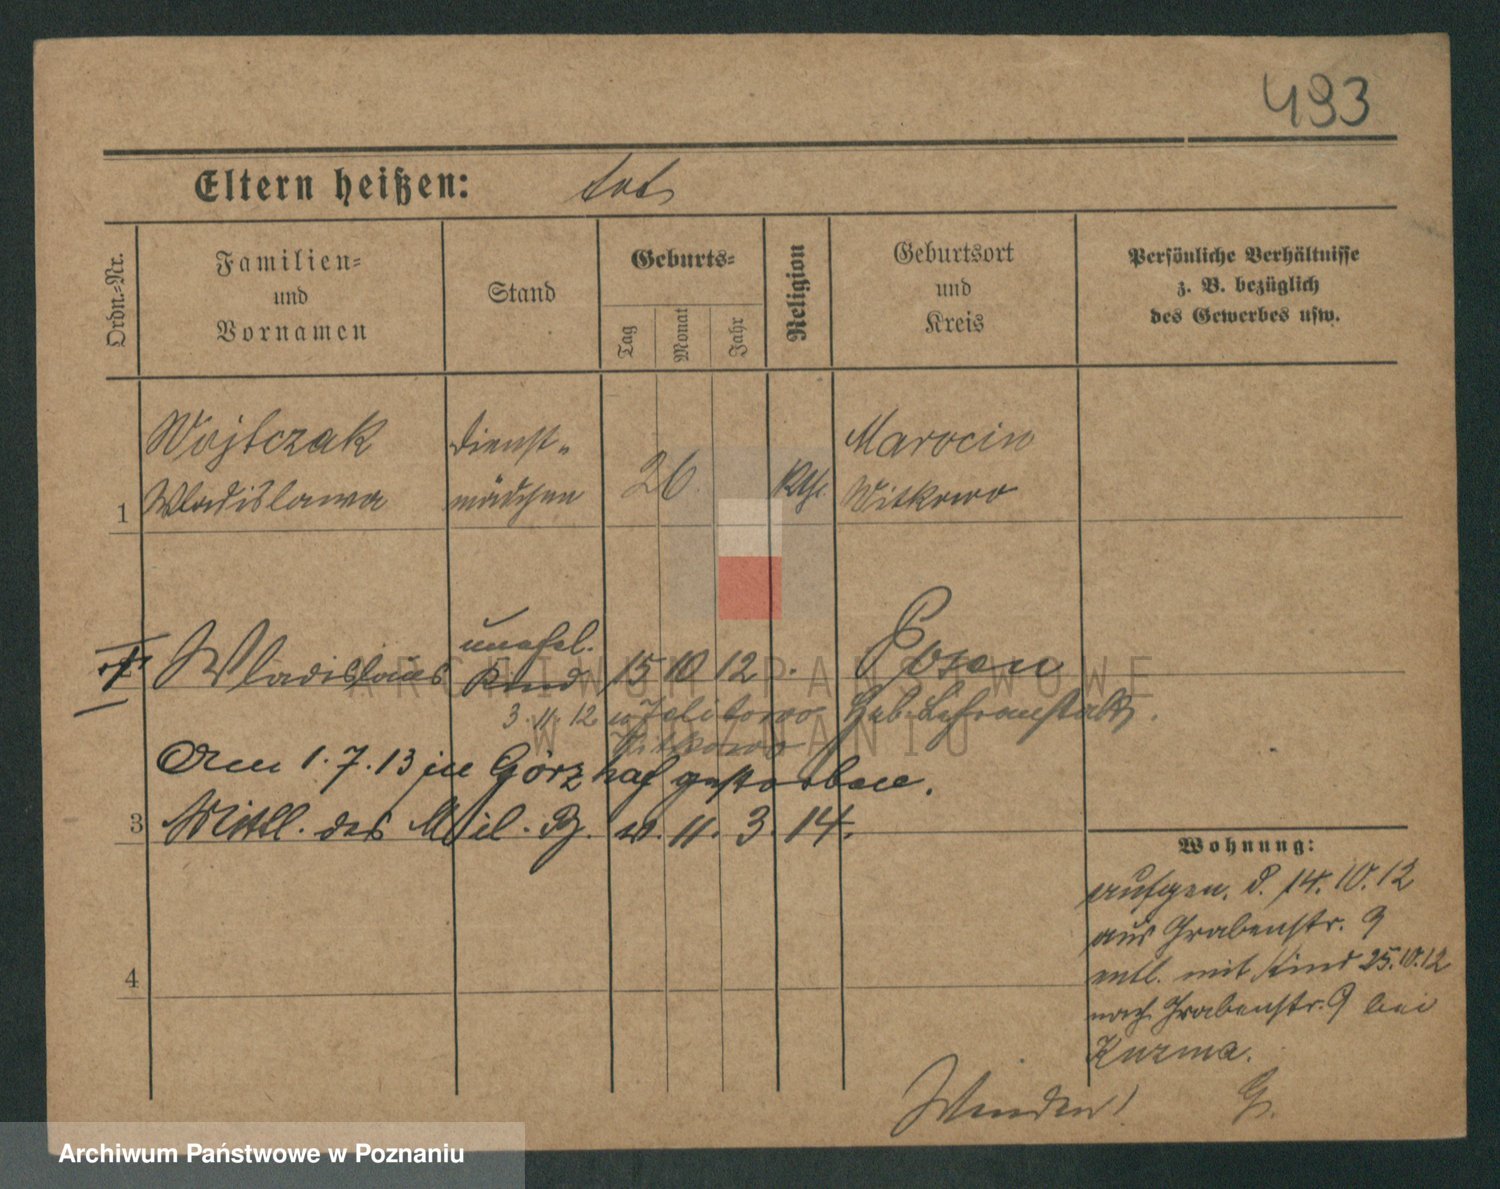 493
Eltern heißen: tot
Ordn.-Nr.
Familien-
und
Vornamen
Stand
Geburts-
Tag
Monat
Jahr
Religion
Geburtsort
und
Kreis
Persönliche Verhältnisse
z. B. bezüglich
des Gewerbes usw.
Wojtczak Dienst- Marocin
1 Wladislawa mädchen 26. Kth. Witkowo
unehel.
Wladislaus Kind 15 10 12. Posen
3.11.12 n. Witkowo Heb. Lehranstalt.
Am 1.7.13 in Görzhof gestorben.
3 Mittl. des Mil. Bz. v. 11. 3. 14.
Wohnung:
aufgen. d. 14.10.12
aus Grabenstr. 9
entl. mit Kind 25.10.12
nach Grabenstr. 9 bei
Kuzma.
4
Wenden! G.
ARCHIWUM PAŃSTWOWE
W POZNANIU
Archiwum Państwowe w Poznaniu